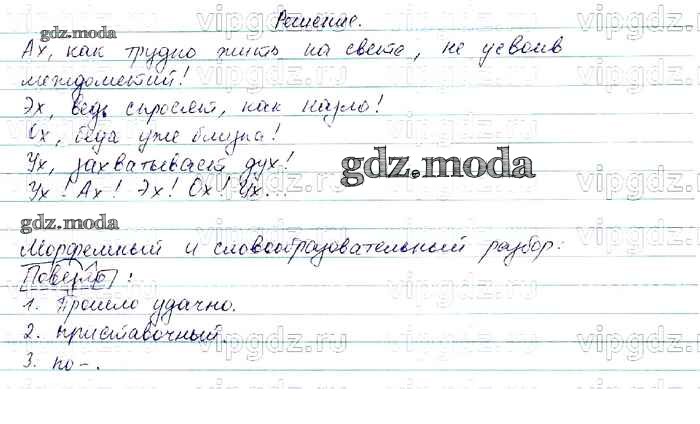 Решение.
Ах, как трудно жить на свете, не усвоив
междометий!
Эх, ведь спросят, как назло!
Ох, беда уже близка!
Ух, захватывает дух!
Ух! Ах! Эх! Ох! Ух...
Морфемный и словообразовательный разбор:
Повезло:
1. Прошло удачно.
2. Приставочный.
3. по-.
gdz.moda
gdz.moda
gdz.moda
vipgdz.ru
vipgdz.ru
vipgdz.ru
vipgdz.ru
vipgdz.ru
vipgdz.ru